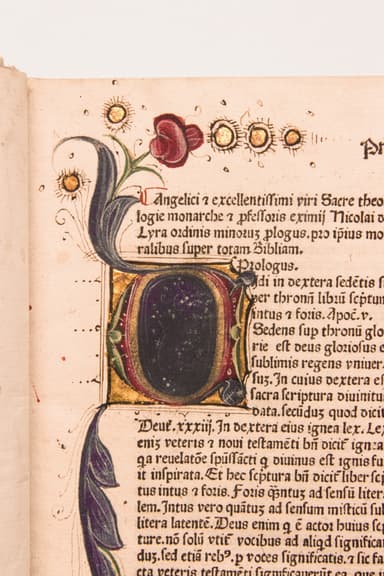 Pr
Angelici ⁊ excellentissimi viri Sacre theo
logie monarche ⁊ ꝓfessoris eximij Nicolai d
Lyra ordinis minoruꝫ ꝓlogus. pro ip̄ius mo
ralibus super totam Bibliam.
Prologus.
Uidi in dextera sedētis s
per thronū librū scp̄tum
intus ⁊ foris. Apoc̄. v.
Sedens sup thronū glo
rie est deus gloriosus e
sublimis regens vniuer
suꝫ. In cuius dextera es
sacra scriptura diuinitu
data. secūduꝫ quod dicit
Deut̄. xxxiij. In dextera eius ignea lex. Lex
eniꝫ veteris ⁊ noui testamēti bn̄ dicit̄ ignea
qa reuelatōe spūssācti q diuinus est ignis fu
it inspirata. Et hec scp̄tura bn̄ dicit̄ liber scp̄
tus intus ⁊ foris. Foris qn̄tuꝫ ad sensū litera
lem. Intus vero quātuꝫ ad sensum misticū su
litera latentē. Deus enim q ē actor huius scp̄
ture. nō solū vtit̄ vocibus ad aliqd significan
duꝫ. sed etiā rebꝰ. ꝙ voces significatis. ⁊ sic fa
cta veteris testamēti significauerūt ea. que i